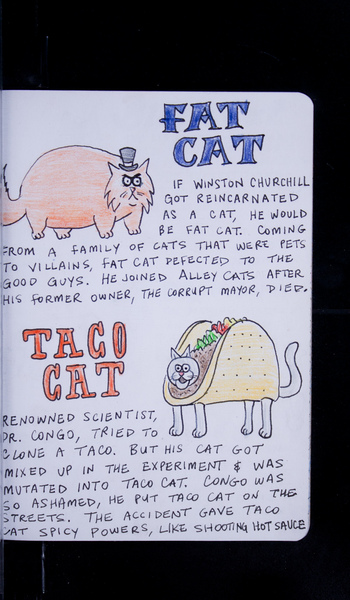 FAT
CAT
IF WINSTON CHURCHILL
GOT REINCARNATED
AS A CAT, HE WOULD
BE FAT CAT. COMING
FROM A FAMILY OF CATS THAT WERE PETS
TO VILLAINS, FAT CAT DEFECTED TO THE
GOOD GUYS. HE JOINED ALLEY CATS AFTER
HIS FORMER OWNER, THE CORRUPT MAYOR, DIED.
TACO
CAT
RENOWNED SCIENTIST,
DR. CONGO, TRIED TO
CLONE A TACO. BUT HIS CAT GOT
MIXED UP IN THE EXPERIMENT & WAS
MUTATED INTO TACO CAT. CONGO WAS
SO ASHAMED, HE PUT TACO CAT ON THE
STREETS. THE ACCIDENT GAVE TACO
CAT SPICY POWERS, LIKE SHOOTING HOT SAUCE